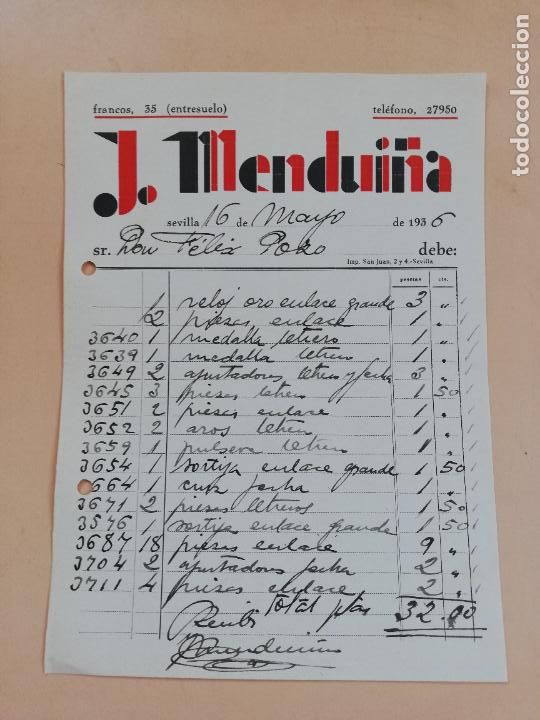 francos, 35 (entresuelo) teléfono, 27950
J. Menduiña
sevilla 16 de Mayo de 1936
sr. Don Félix Pozo debe:
Imp. San Juan, 2 y 4.-Sevilla
pesetas cts.
1 reloj oro enlace grande 3 "
2 piezas enlace 1 "
3640 1 medalla letrero 1 "
3639 1 medalla letrero 1 "
3649 2 apretadores letrero y fecha 3 "
3645 3 piezas letrero 1 50
3651 2 piezas enlace 1 "
3652 2 aros letrero 1 "
3659 1 pulsera letrero 1 "
3654 1 sortija enlace grande 1 50
664 1 cruz fecha 1 "
3671 2 piezas letreros 1 50
3576 1 sortija enlace grande 1 50
3687 18 piezas enlace 9 "
3704 2 apretadores fecha 2 "
3711 4 piezas enlace 2 "
Total ptas 32.00
Recibí
J. Menduiña
todocoleccion.net